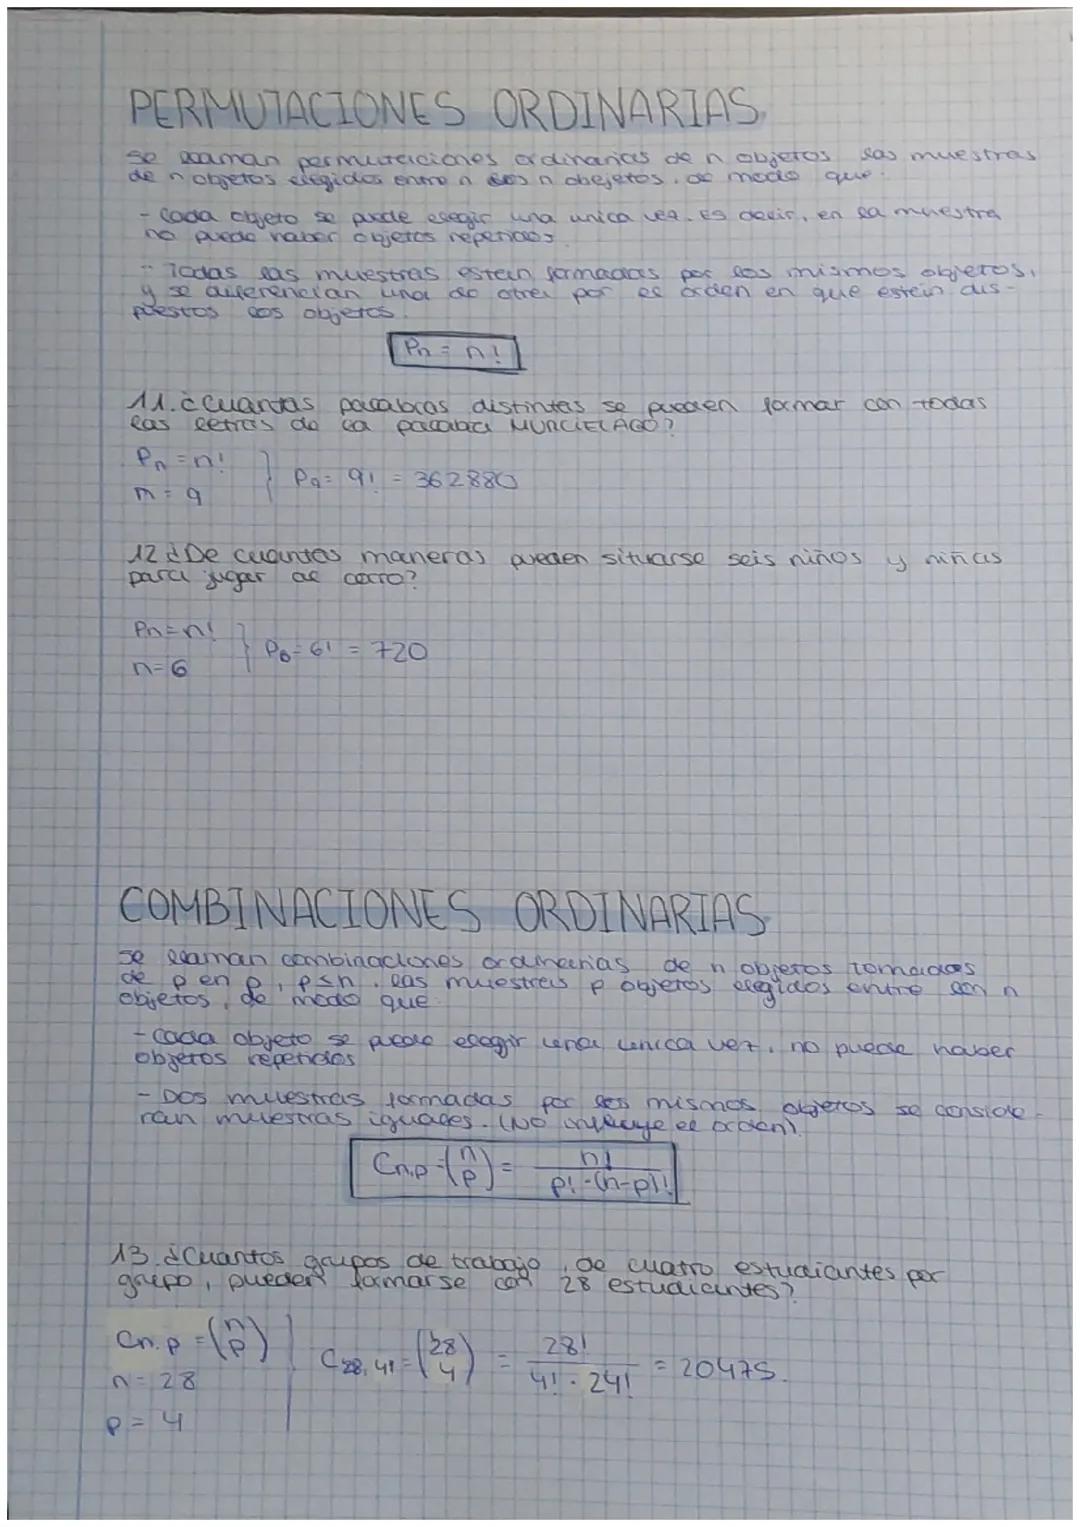 PERMUTACIONES ORDINARIAS
Se llaman permutaciones ordinarias de n objetos las muestras
de n objetos elegidos entre n los n obejetos, de modo que:
- Cada objeto se puede elegir una unica vez. Es decir, en la muestra
no puede haber objetos repetidos.
- Todas las muestras están formadas por los mismos objetos,
y se diferencian una de otra por el orden en que estén dis-
puestos los objetos.
Pn = n!
11. ¿Cuantas palabras distintas se pueden formar con todas
las letras de la palabra MURCIELAGO?
Pn = n!
n = 9
P9 = 9! = 362880
12 ¿De cuantas maneras pueden situarse seis niños y niñas
para jugar al corro?
Pn = n!
n = 6
P6 = 6! = 720
COMBINACIONES ORDINARIAS
Se llaman combinaciones ordinarias de n objetos tomados
de p en p, p≤n, las muestras p objetos elegidos entre los n
objetos, de modo que
- Cada objeto se puede elegir una unica vez, no puede haber
objetos repetidos
- Dos muestras formadas por los mismos objetos se conside-
ran muestras iguales. (No influye el orden).
Cn,p = (n p) = n! / p!·(n-p)!
13. ¿Cuantos grupos de trabajo, de cuatro estudiantes por
grupo, pueden formarse con 28 estudiantes?
Cn,p = (n p)
n = 28
p = 4
C28,4! = (28 4) = 28! / 4! · 24! = 20475.